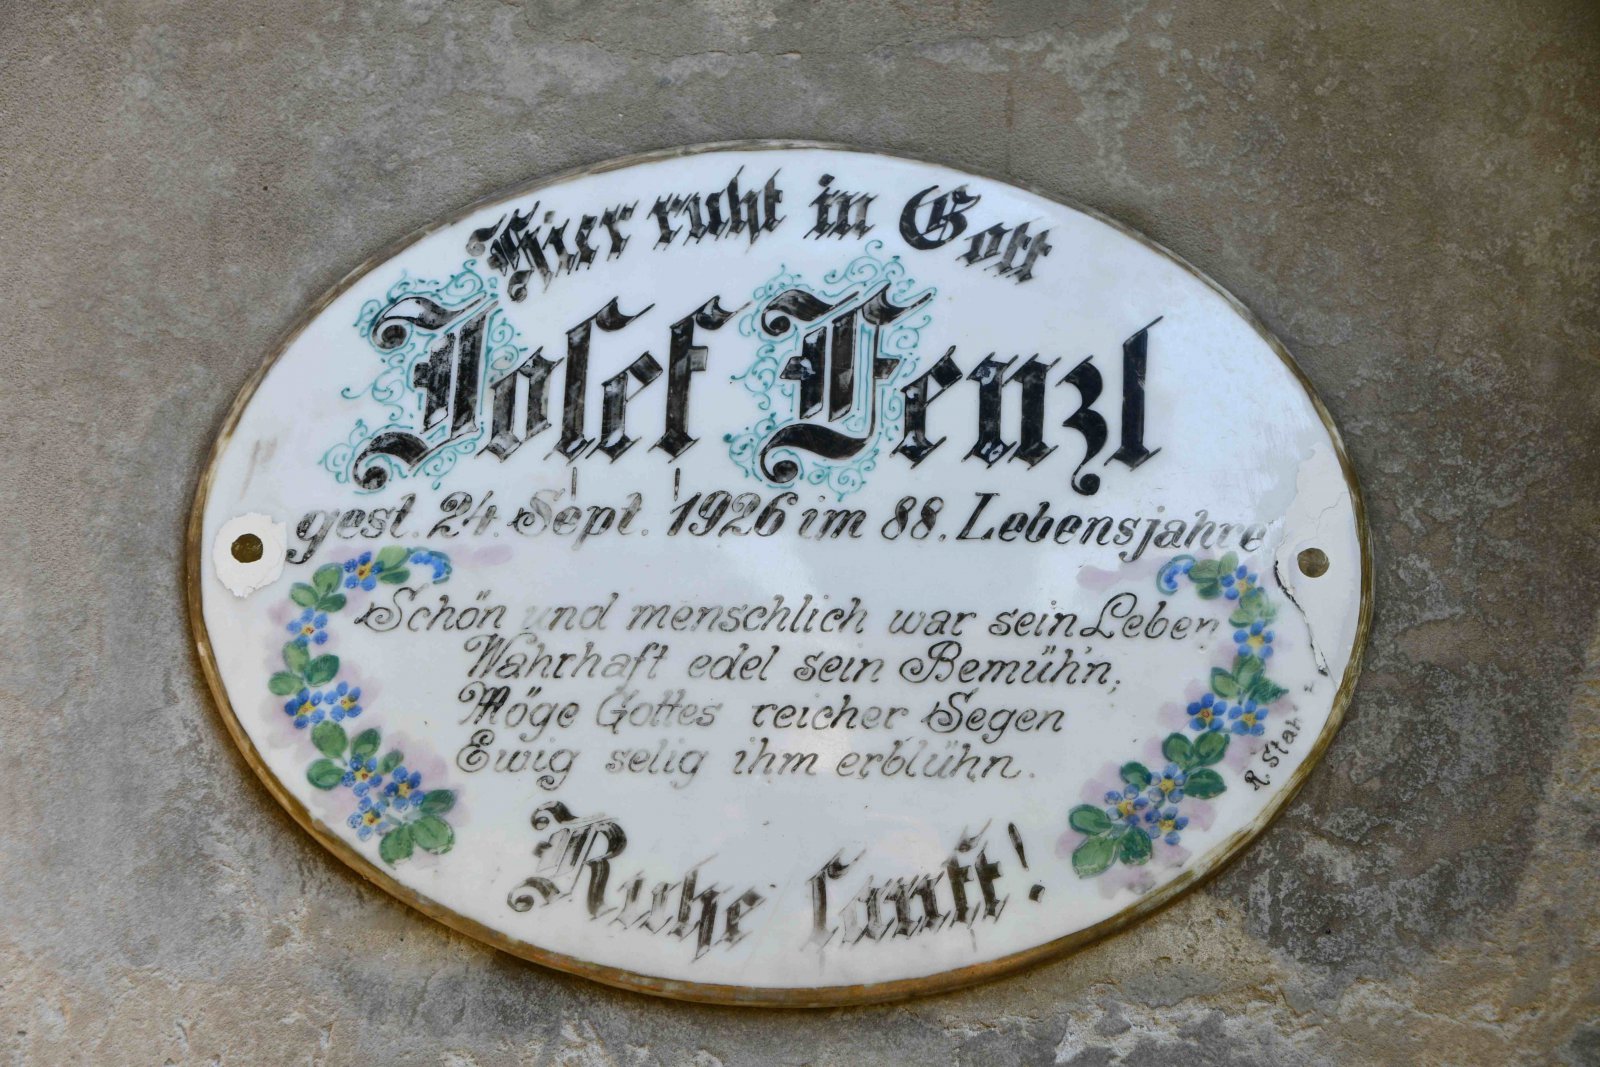 Hier ruht in Gott
Josef Fenzl
gest. 24. Sept. 1926 im 88. Lebensjahre
Schön und menschlich war sein Leben
Wahrhaft edel sein Bemüh'n,
Möge Gottes reicher Segen
Ewig selig ihm erblühn.
Ruhe sanft!
R. Stah